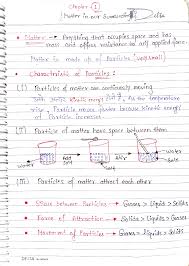 Chapter - 1
Matter in our Surrounding
• Matter → Anything that occupies space and has
mass and offers resistance to any applied force.
Matter is made up of Particles (very small)
• Characteristic of Particles :
(I) Particles of matter are continuously moving
rise, Particle moves faster because kinetic energy
of Particle increases.
(II) Particles of matter have space between them
Water
Add
Salt
(III) Particles of matter attract each other
• Space between Particles → Gases > Liquids > Solids
• Force of Attraction → Solids > Liquids > Gases
• Movement of Particles → Gases > Liquids > Solids